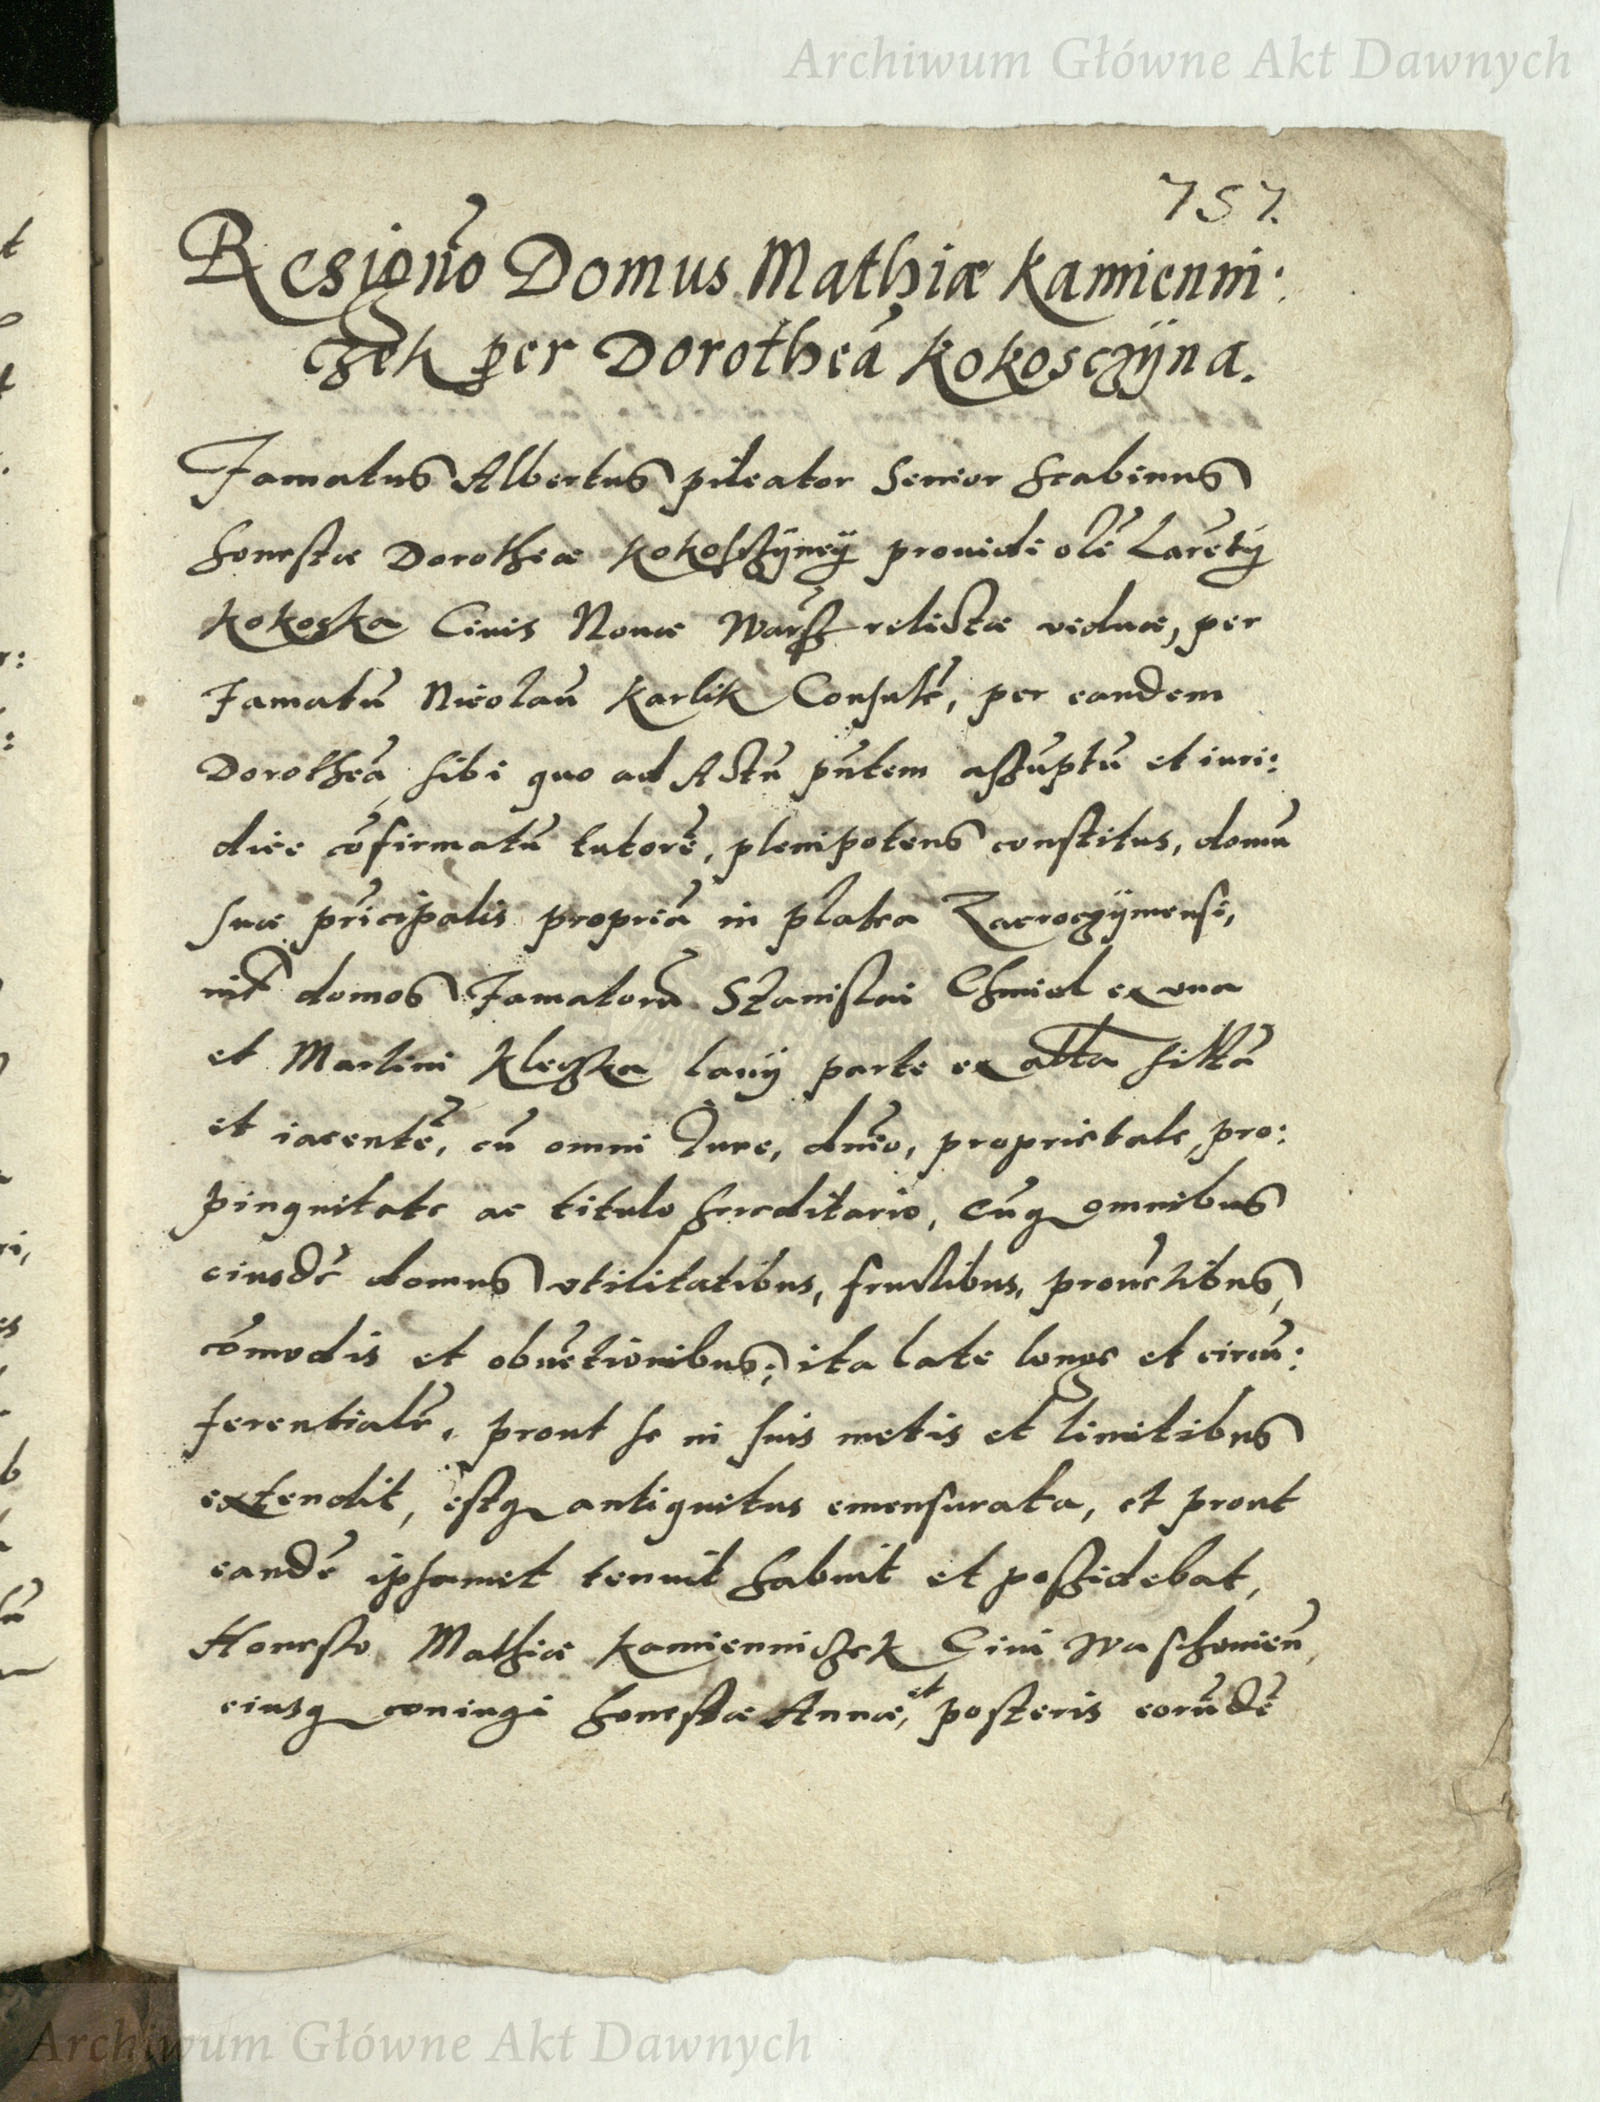 Archiwum Główne Akt Dawnych
757.
Resigno Domus Mathiæ Kamienni:
czek per Dorotheā Kokosczÿna.
Famatus Albertus pileator Senior Scabinus
honestæ Dorotheæ Kokosszÿneÿ prouidi olī Laurētÿ
Kokoska Ciuis Nouæ Warsz relictæ viduæ, per
Famatū Nicolaū Karlik Consulē, per eandem
Dorotheā sibi quo ad Actū pñtem assūptū et iuri:
dice cōfirmatū tutorē, plenipotens constitus, domū
suæ prīcipalis propriā in platea Zacroczÿmensi,
int domos Famatorū Stanislai Chmiel ex vna
et Martini Kleszka lanÿ parte ex altā sittā
et iacentē, cū omni Iure, dnīo, proprietate, pro:
pinquitate ac titulo hæreditario, cūq omnibus
eiusdē domus vtilitatibus, fructibus, prouētibus,
cōmodis et obuētionibus, ita late longe et circū:
ferentialē, prout se in suis metis et limitibus
extendit, estq antiquitus emensurata, et prout
eandē ipsamet tenuit habuit et possidebat,
Honesto Mathiæ Kamienniczek Ciui Warschouień,
eiusq coniugi honestæ Annæ, et posteris eorūdē
Archiwum Główne Akt Dawnych